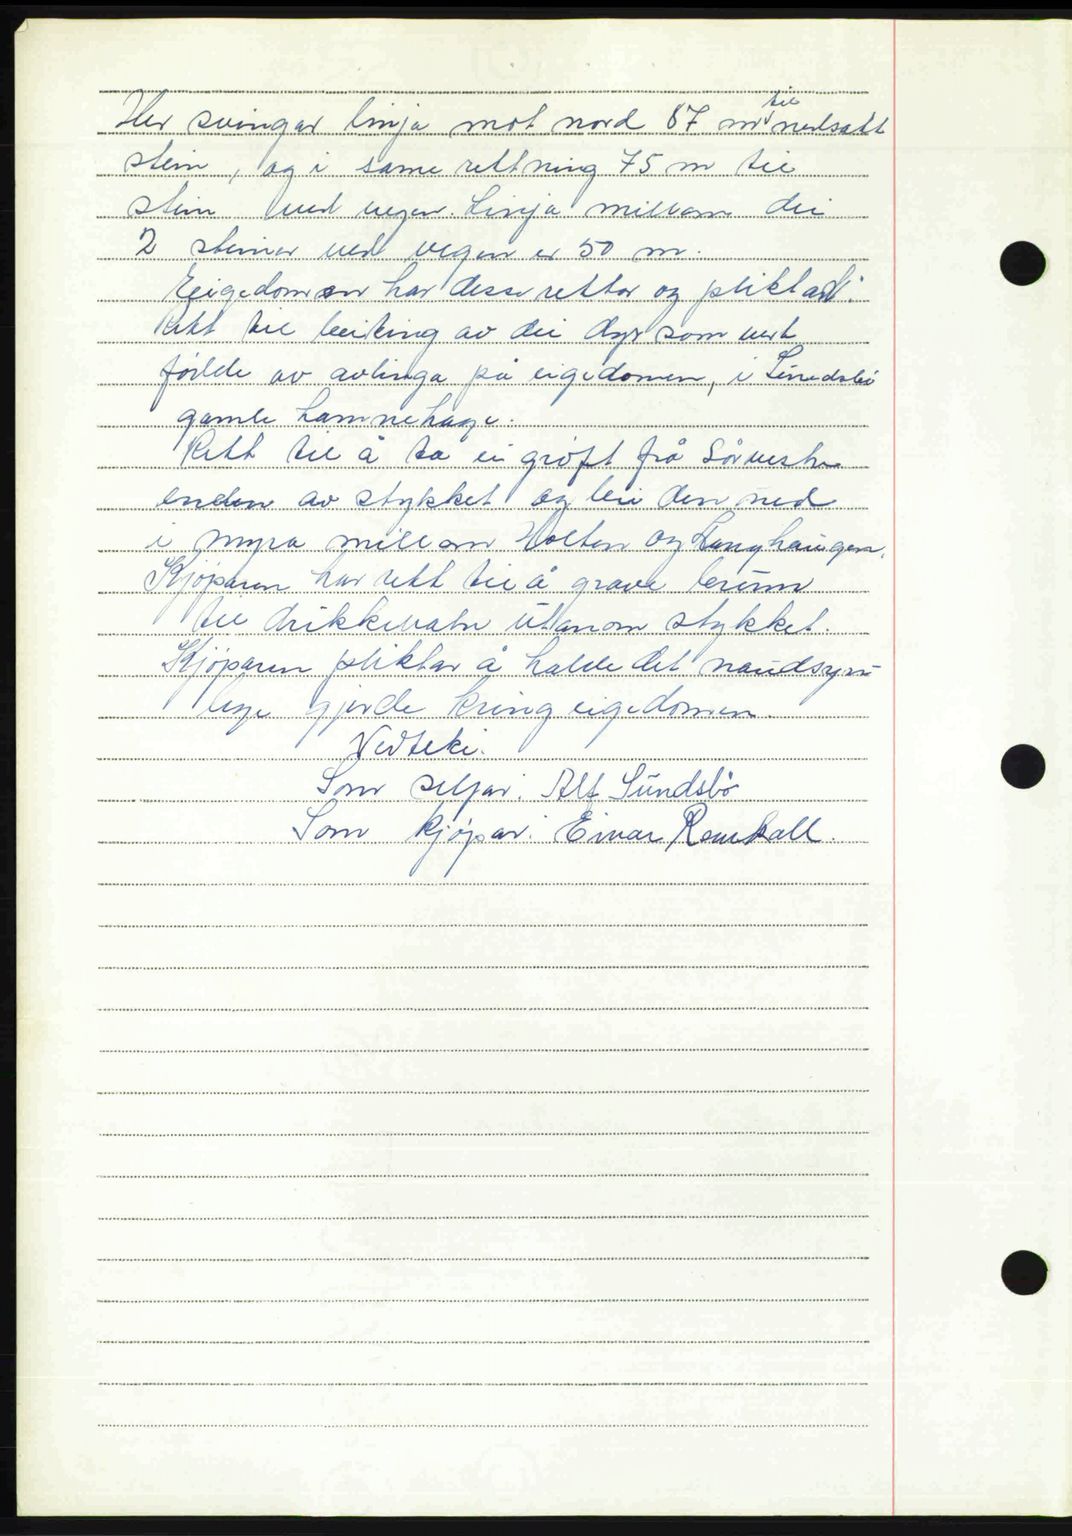 Her svingar linja mot nord 87 m til nedsatt
stein, og i same rettning 75 m til
stein ved vegen. Linja millom dei
2 steinar ved vegen er 50 m.
Eigedomen har desse rettar og pliktar:
Rett til beiting av dei dyr som vert
fødde av avlinga på eigedomen, i Sundsbø
gamle hamnehage.
Rett til å ta ei grøft frå Sørvestre
enden av stykket og lei den ned
i myra millom Holten og Langhaugen.
Kjøparen har rett til å grave brunn
til drikkevatn utanom stykket.
Kjøparen pliktar å halde det naudsyn-
lege gjerde kring eigedomen.
Vedteke.
Som seljar: Alf Sundsbø
Som kjøpar: Einar